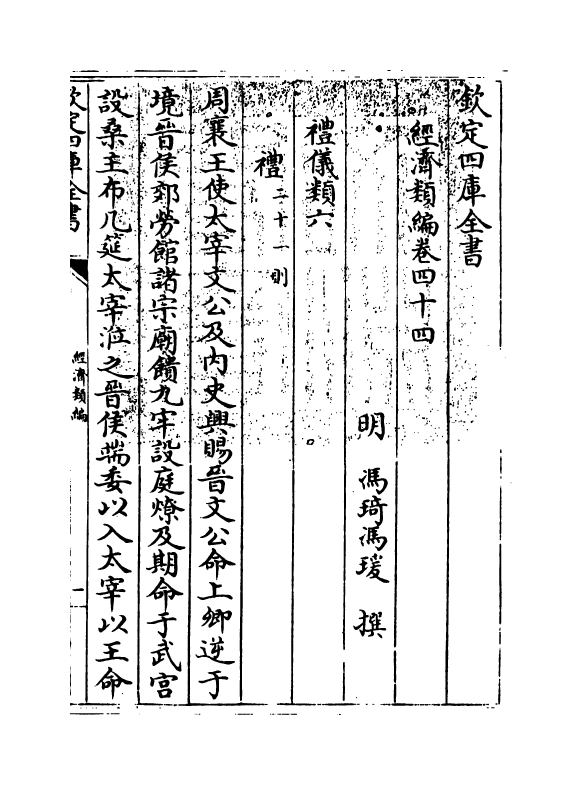 欽定四庫全書
經濟類編卷四十四
明 馮琦馮瑗 撰
禮儀類六
禮二十一則
周襄王使太宰文公及内史興賜晉文公命上卿逆于
境晉侯郊勞館諸宗廟饋九牢設庭燎及期命于武宫
設桑主布几筵太宰涖之晉侯端委以入太宰以王命
欽定四庫全書
經濟類編
一